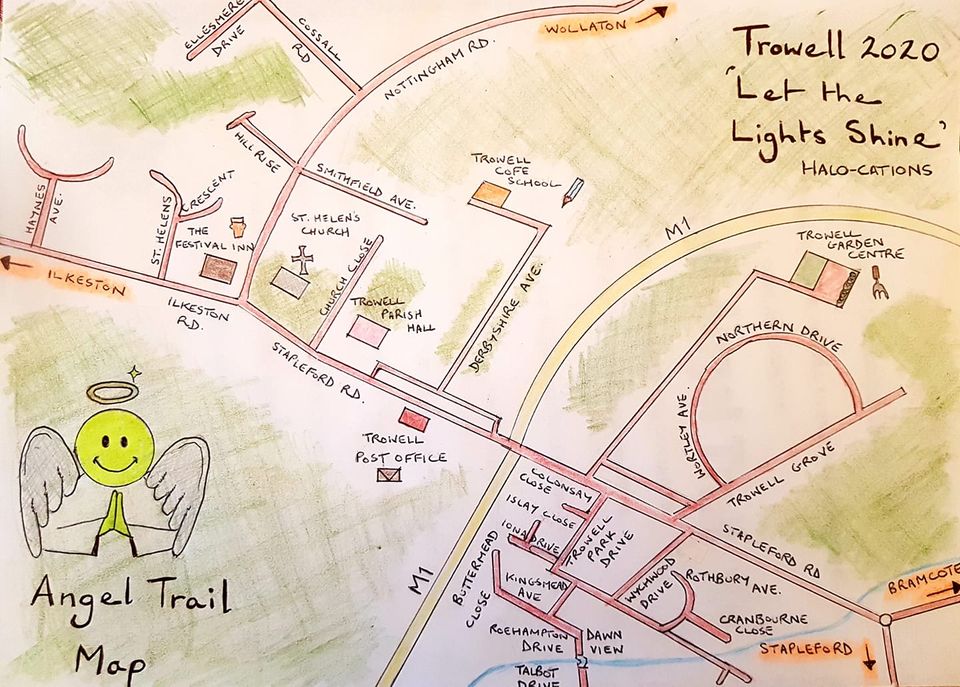 Trowell 2020
'Let the
Lights Shine'
HALO-CATIONS
WOLLATON
ELLESMERE
DRIVE
COSSALL
RD
NOTTINGHAM RD.
HILL RISE
SMITHFIELD AVE.
TROWELL
COFE
SCHOOL
HAYNES
AVE.
ST. HELENS
CRESCENT
THE
FESTIVAL INN
ST. HELEN'S
CHURCH
CHURCH CLOSE
M1
TROWELL
GARDEN
CENTRE
ILKESTON
ILKESTON
RD.
TROWELL
PARISH
HALL
DERBYSHIRE AVE.
STAPLEFORD RD.
NORTHERN DRIVE
WORTLEY AVE
TROWELL GROVE
TROWELL
POST OFFICE
COLONSAY
CLOSE
ISLAY CLOSE
IONA DRIVE
TROWELL
PARK
DRIVE
STAPLEFORD RD
BRAMCOTE
M1
BUTTERMEAD
CLOSE
KINGSMEAD
AVE
WYCHWOOD
DRIVE
ROTHBURY AVE.
CRANBOURNE
CLOSE
STAPLEFORD
ROEHAMPTON
DRIVE
DAWN
VIEW
TALBOT
DRIVE
Angel Trail
Map